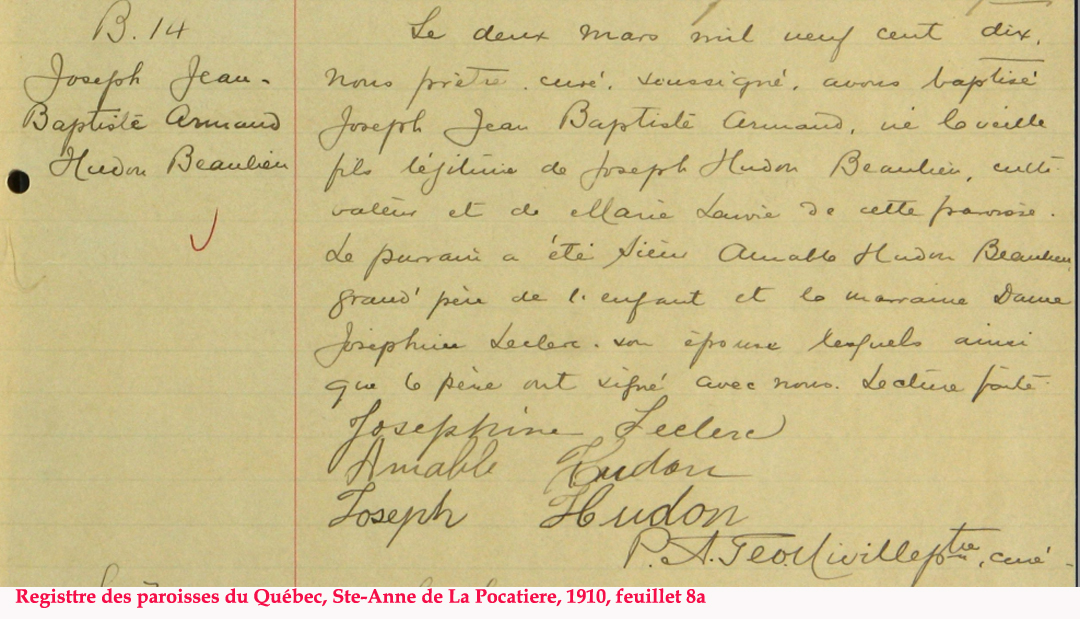 B. 14
Joseph Jean-
Baptiste Armand
Hudon Beaulieu
Le deux mars mil neuf cent dix,
nous prêtre, curé, soussigné, avons baptisé
Joseph Jean Baptiste Armand, né la veille
fils légitime de Joseph Hudon Beaulieu, culti-
vateur et de Marie Lavoie de cette paroisse.
Le parrain a été Sieur Amable Hudon Beaulieu,
grand'père de l'enfant et la marraine Dame
Joséphine Leclerc, son épouse lesquels ainsi
que le père ont signé avec nous. Lecture faite
Josephine Leclerc
Amable Hudon
Joseph Hudon
P. A. Téo. Miville ptre, curé
Registtre des paroisses du Québec, Ste-Anne de La Pocatiere, 1910, feuillet 8a